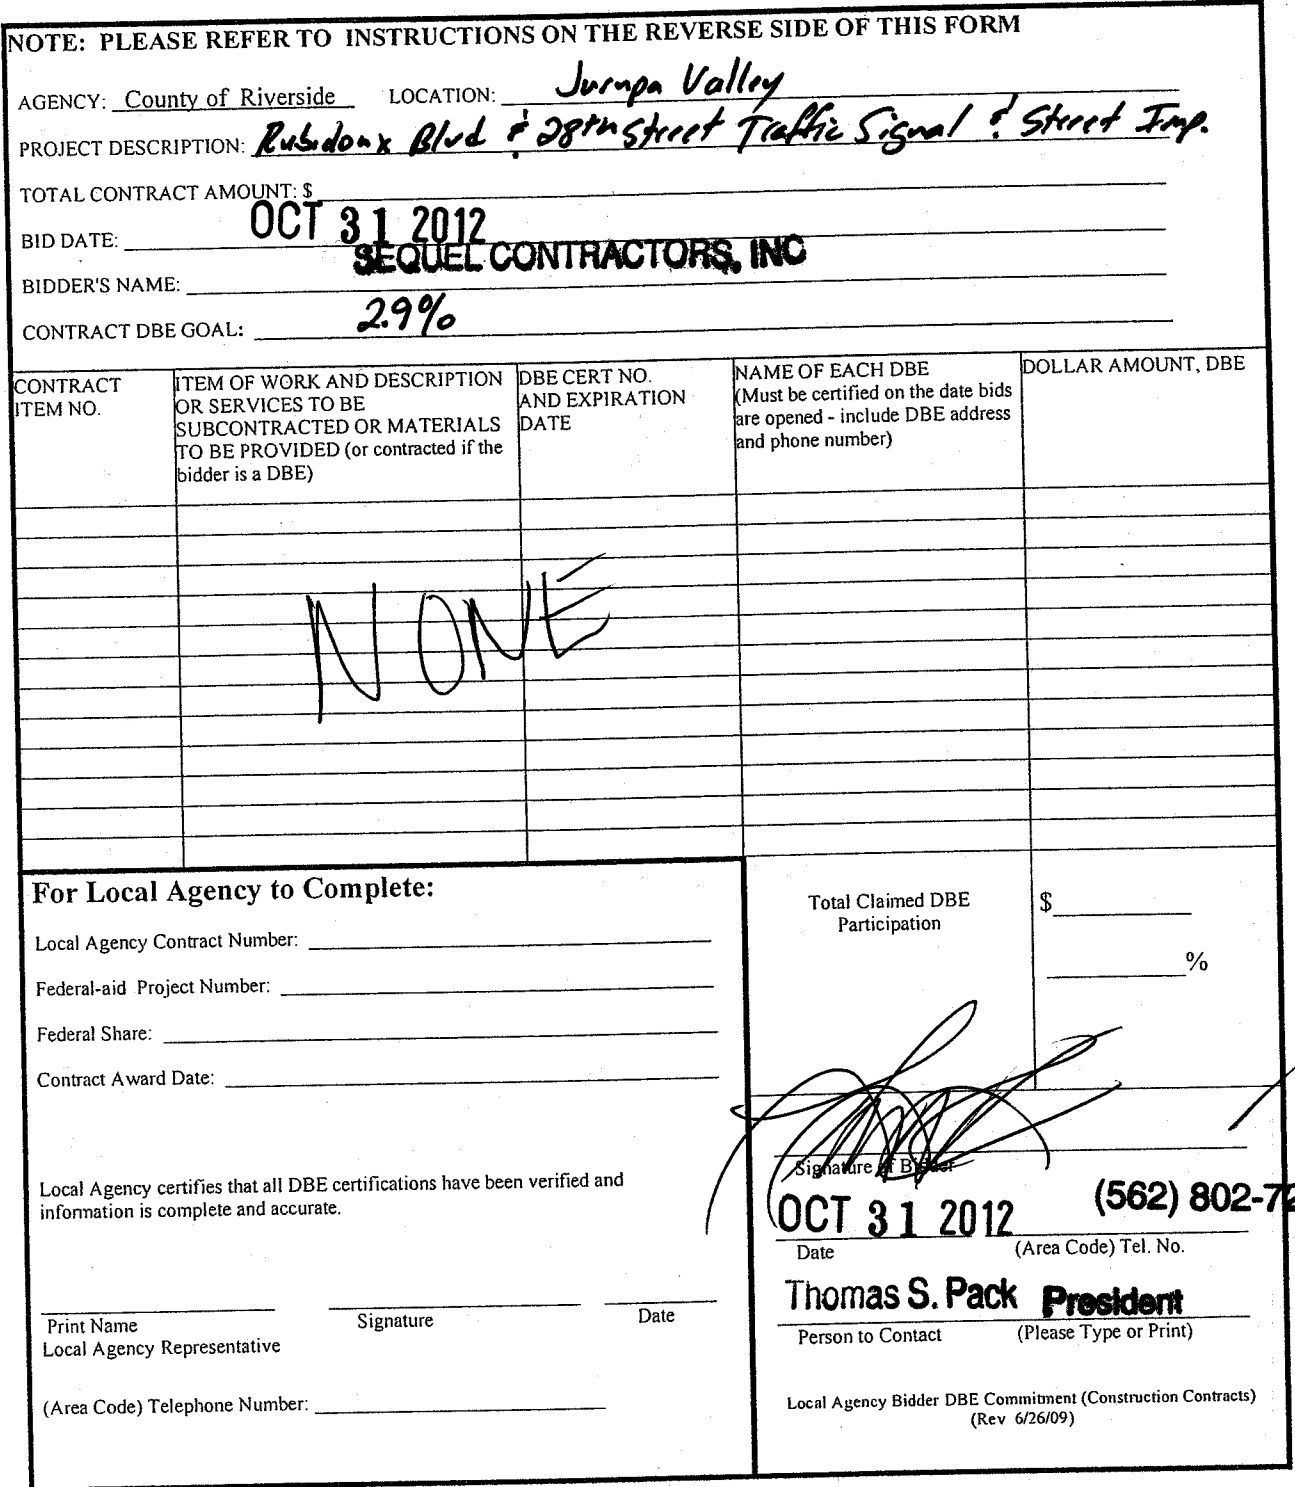 NOTE: PLEASE REFER TO INSTRUCTIONS ON THE REVERSE SIDE OF THIS FORM
AGENCY: County of Riverside LOCATION: Jurupa Valley
PROJECT DESCRIPTION: Rubidoux Blvd & 28th Street Traffic Signal & Street Imp.
TOTAL CONTRACT AMOUNT: $
BID DATE: OCT 31 2012
BIDDER'S NAME: SEQUEL CONTRACTORS, INC
CONTRACT DBE GOAL: 2.9%
CONTRACT ITEM NO.
ITEM OF WORK AND DESCRIPTION
OR SERVICES TO BE
SUBCONTRACTED OR MATERIALS
TO BE PROVIDED (or contracted if the
bidder is a DBE)
DBE CERT NO.
AND EXPIRATION
DATE
NAME OF EACH DBE
(Must be certified on the date bids
are opened - include DBE address
and phone number)
DOLLAR AMOUNT, DBE
NONE
For Local Agency to Complete:
Local Agency Contract Number:
Federal-aid Project Number:
Federal Share:
Contract Award Date:
Local Agency certifies that all DBE certifications have been verified and
information is complete and accurate.
Print Name
Signature
Date
Local Agency Representative
(Area Code) Telephone Number:
Total Claimed DBE
Participation
$
%
Signature of Bidder
OCT 31 2012 (562) 802-72
Date (Area Code) Tel. No.
Thomas S. Pack President
Person to Contact (Please Type or Print)
Local Agency Bidder DBE Commitment (Construction Contracts)
(Rev 6/26/09)